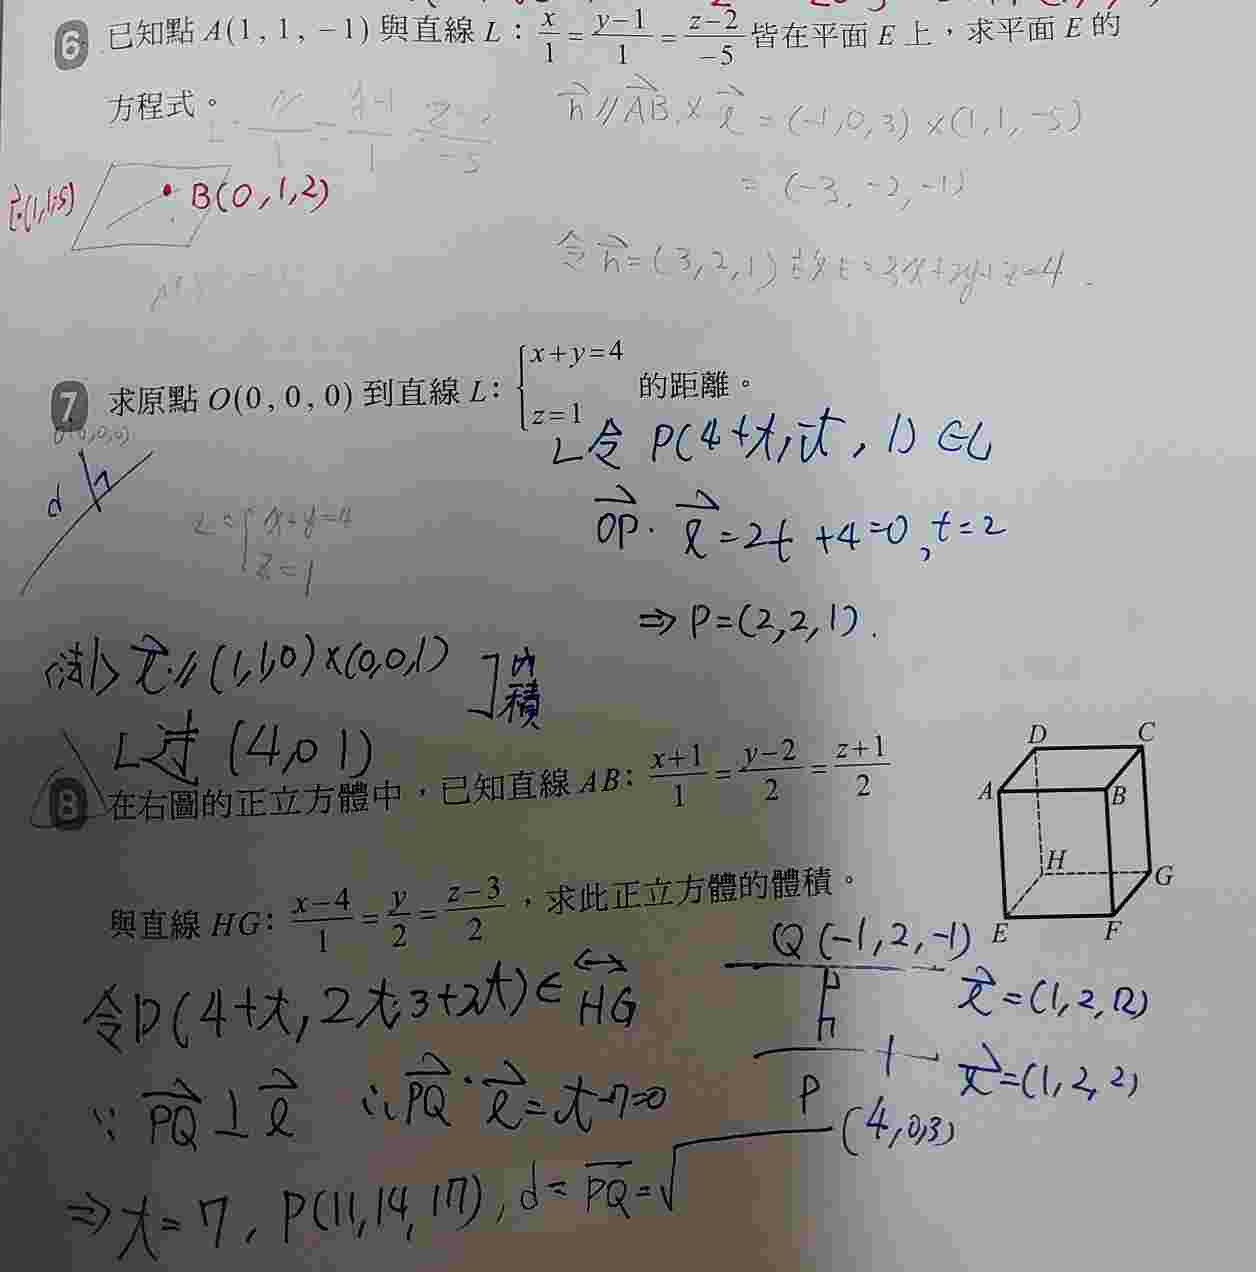 6 已知點 A(1, 1, -1) 與直線 L: x/1 = y-1/1 = z-2/-5 皆在平面 E 上,求平面 E 的
方程式。
n // AB × l = (-1,0,3) × (1,1,-5)
= (-3, -2, -1)
B(0,1,2)
令 n = (3,2,1)
7 求原點 O(0, 0, 0) 到直線 L: { x+y=4
z=1 的距離。
O(0,0,0)
d
L 令 P(4+t, -t, 1) ∈ L
OP · l = 2t +4=0, t=2
L = { x+y=4
z=1
⇒ P=(2,2,1).
l // (1,1,0)×(0,0,1)
內積
L过 (4,0 1)
8 在右圖的正立方體中,已知直線 AB: x+1/1 = y-2/2 = z+1/2
與直線 HG: x-4/1 = y/2 = z-3/2 ,求此正立方體的體積。
D C
A B
H G
E F
Q(-1,2,-1)
l=(1,2,2)
h
l=(1,2,2)
P (4,0,3)
令P(4+t, 2t, 3+2t) ∈ HG
∵ PQ ⊥ l ∴ PQ · l = t-7=0
⇒ t=7, P(11,14,17), d= PQ = √